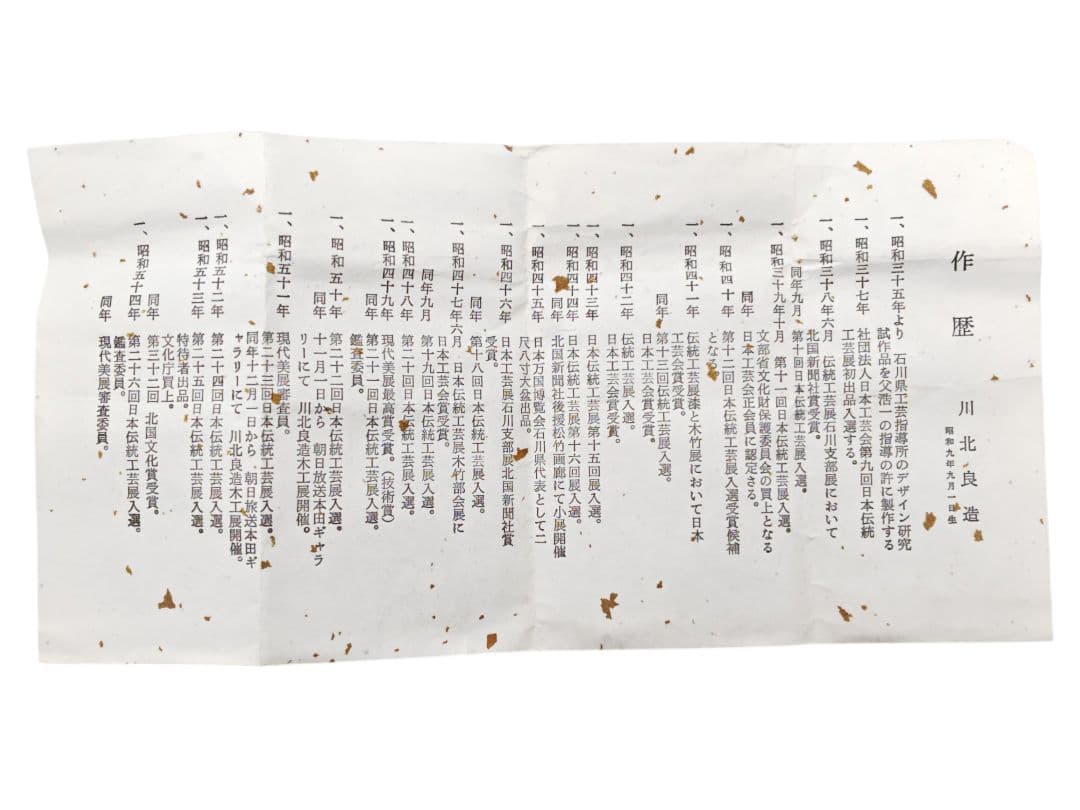 作歴　川北良造
昭和九年九月一日生
一、昭和三十五年より　石川県工芸指導所のデザイン研究
試作品を父浩一の指導の許に製作する
一、昭和三十七年　社団法人日本工芸会第九回日本伝統
工芸展初出品入選する。
一、昭和三十八年六月　伝統工芸展石川支部展において
北国新聞社賞受賞。
同年九月　第十回日本伝統工芸展入選。
一、昭和三十九年十月　第十一回日本伝統工芸展入選。
文部省文化財保護委員会の買上となる
同年　日本工芸会正会員に認定さる。
一、昭和四十年　第十二回日本伝統工芸展入選受賞候補
となる。
一、昭和四十一年　伝統工芸展漆と木竹展において日本
工芸会賞受賞。
同年　第十三回伝統工芸展入選。
日本工芸会賞受賞。
一、昭和四十二年　伝統工芸展入選。
日本工芸会賞受賞。
一、昭和四十三年　日本伝統工芸展第十五回展入選。
一、昭和四十四年　日本伝統工芸展第十六回展入選。
同年　北国新聞社後援松竹画廊にて小展開催
一、昭和四十五年　日本万国博覧会石川県代表として二
尺八寸大盆出品。
一、昭和四十六年　日本工芸展石川支部展北国新聞社賞
受賞。
同年　第十八回日本伝統工芸展入選。
一、昭和四十七年六月　日本伝統工芸展木竹部会展に
日本工芸会賞受賞。
同年九月　第十九回日本伝統工芸展入選。
一、昭和四十八年　第二十回日本伝統工芸展入選。
一、昭和四十九年　現代美展最高賞受賞。（技術賞）
同年　第二十一回日本伝統工芸展入選。
鑑査委員。
一、昭和五十年　第二十二回日本伝統工芸展入選。
同年　十一月一日から　朝日放送本田ギャラ
リーにて　川北良造木工展開催。
一、昭和五十一年　現代美展審査員。
第二十三回日本伝統工芸展入選。
同年十二月一日から　朝日旅送本田ギ
ャラリーにて　川北良造木工展開催。
一、昭和五十二年　第二十四回日本伝統工芸展入選。
一、昭和五十三年　第二十五回日本伝統工芸展入選。
特待者出品。
文化庁買上。
同年　第三十二回　北国文化賞受賞。
一、昭和五十四年　第二十六回日本伝統工芸展入選。
鑑査委員。
同年　現代美展審査委員。